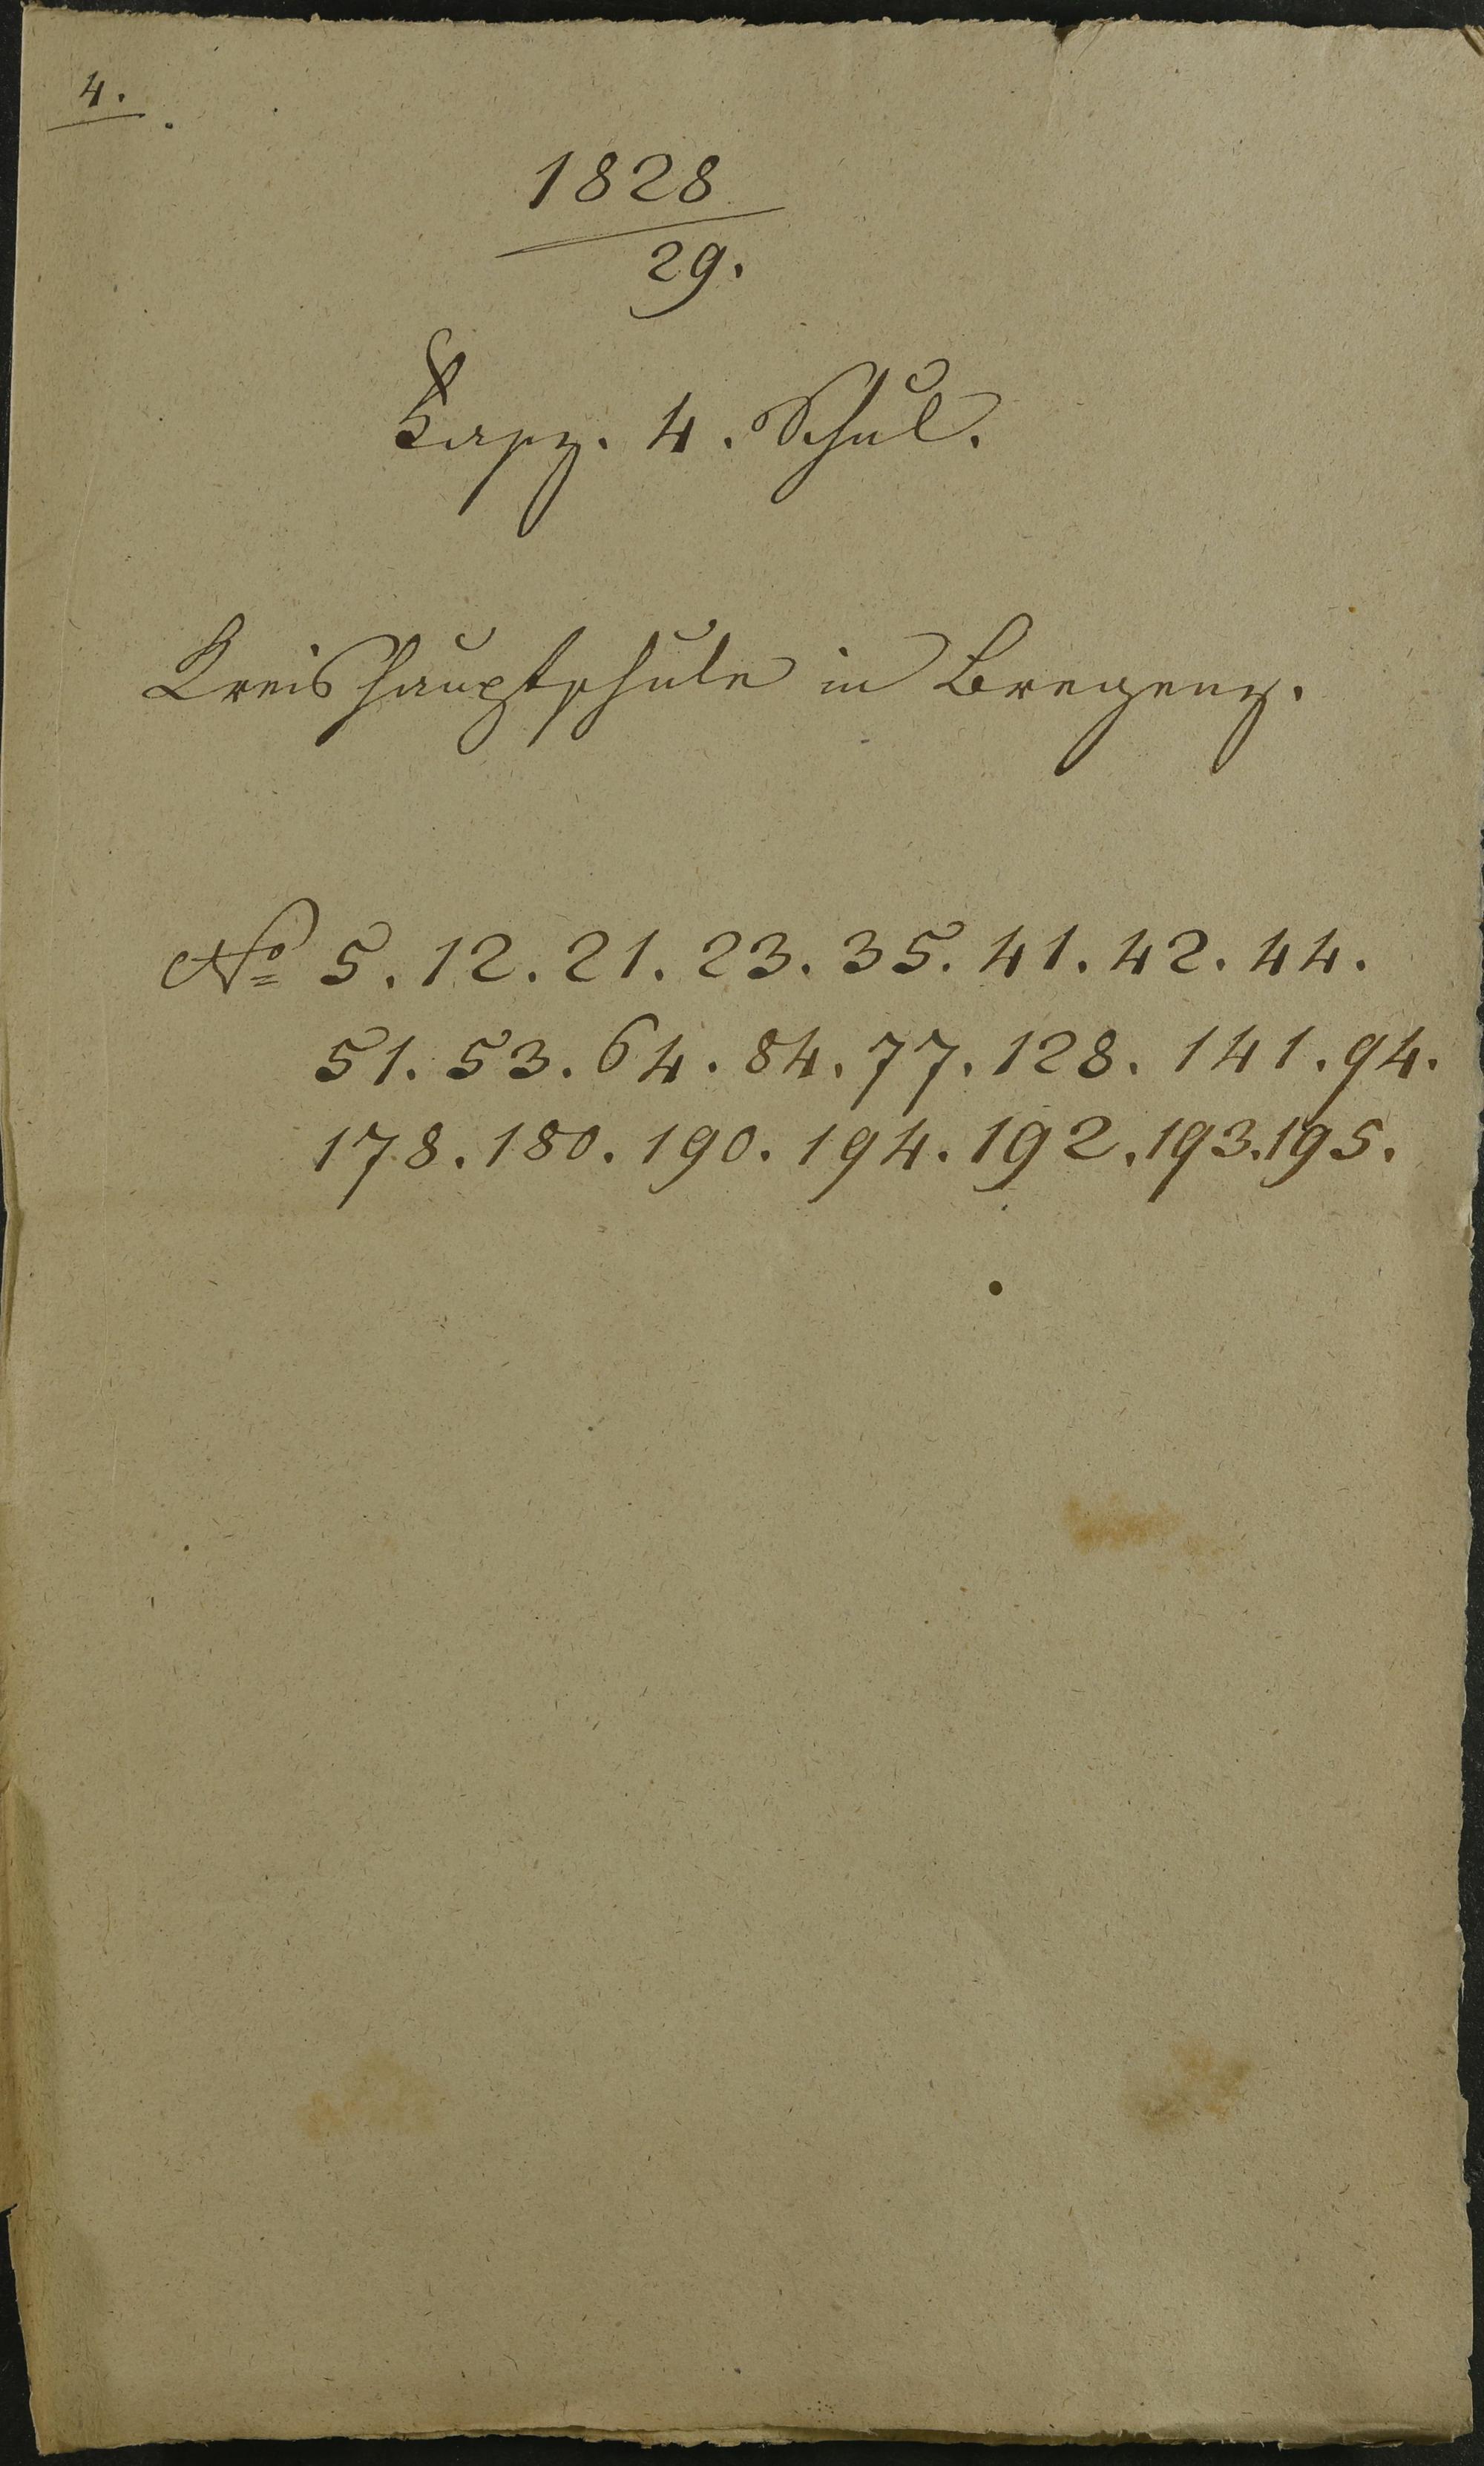 4.
1828
29.
Fasz. 4. Schul.
Kreishauptschule in Bregenz.
No 5. 12. 21. 23. 35. 41. 42. 44.
51. 53. 64. 84. 77. 128. 141. 94.
178. 180. 190. 194. 192. 193. 195.